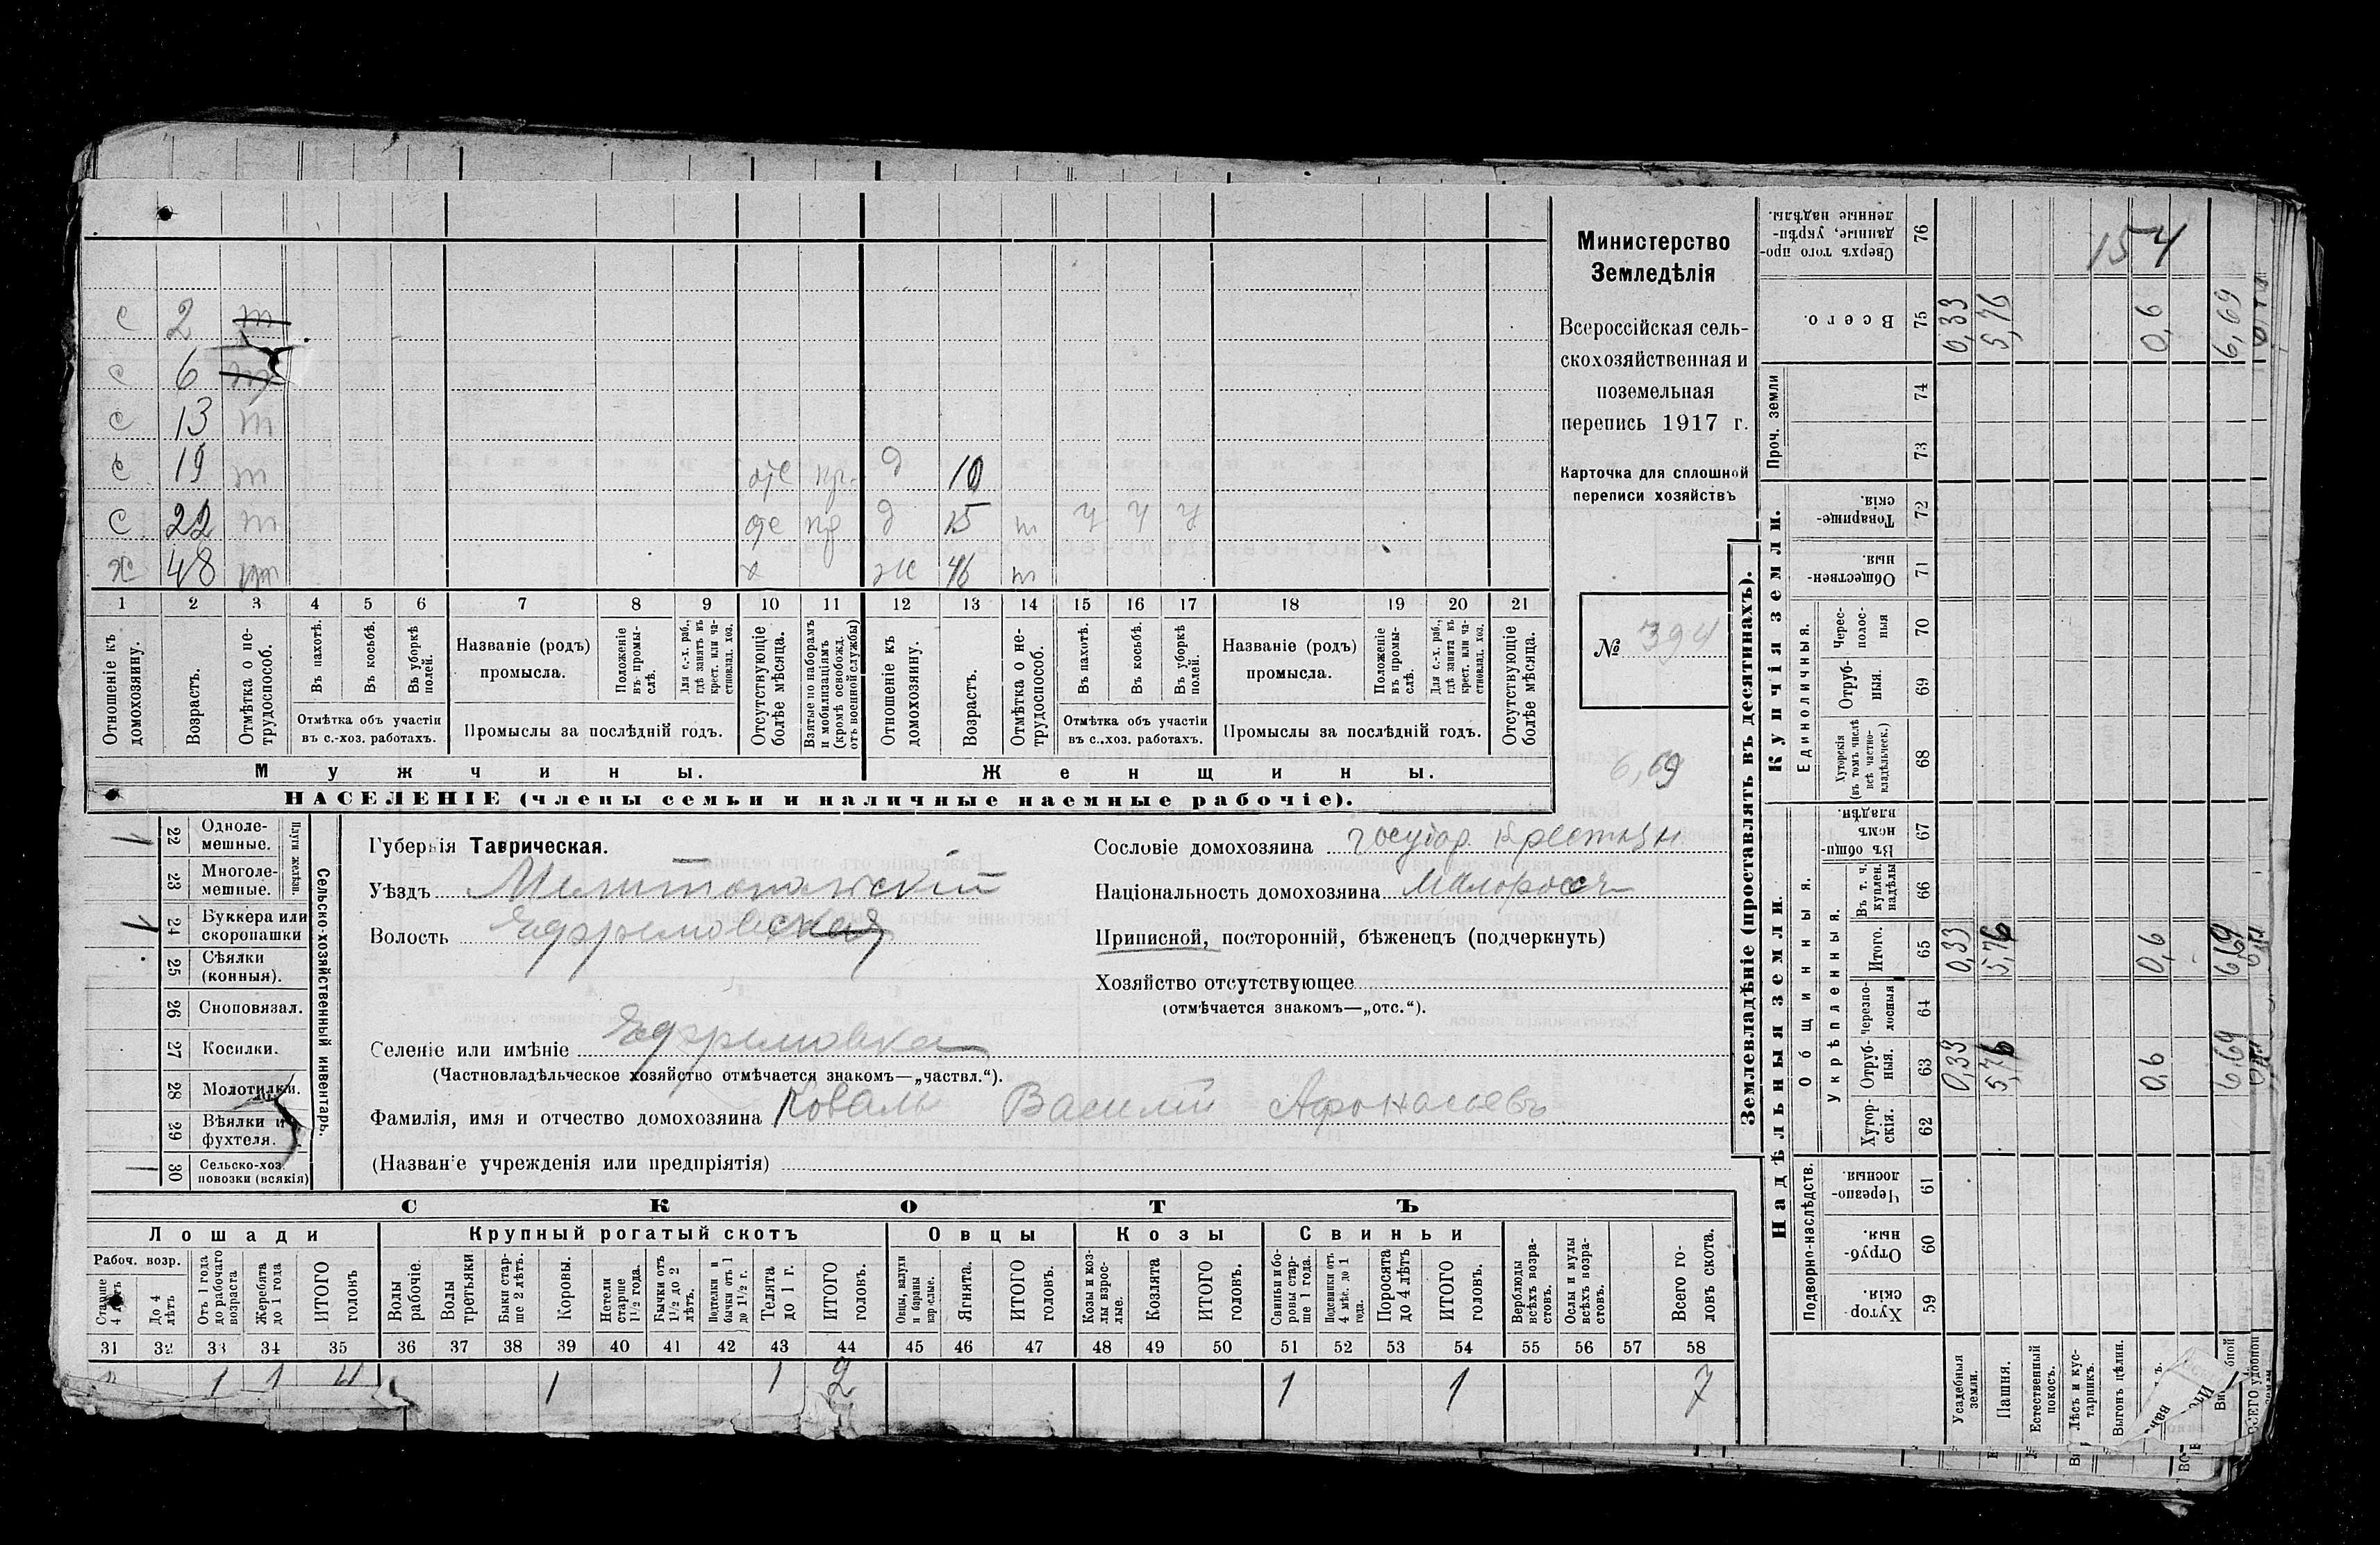 с 2 m
с 6 m
с 13 m
с 19 m отс кр. д 10
с 22 m отс кр д 15 m ч ч ч
х 48 х ж 46 m
1 2 3 4 5 6 7 8 9 10 11 12 13 14 15 16 17 18 19 20 21
Отношеніе къ домохозяину.
Возрастъ.
Отмѣтка о нетрудоспособ.
Въ пахотѣ.
Въ косьбѣ.
Въ уборкѣ полей.
Отмѣтка объ участіи
въ с.-хоз. работахъ.
Названіе (родъ)
промысла.
Положеніе въ промыслѣ.
Для с.-х. раб., гдѣ занятъ въ крест. или частновлад. хоз.
Промыслы за послѣдній годъ.
Отсутствующіе болѣе мѣсяца.
Взятые по наборамъ и мобилизаціямъ (кромѣ освобожд. отъ военной службы)
Отношеніе къ домохозяину.
Возрастъ.
Отмѣтка о нетрудоспособ.
Въ пахотѣ.
Въ косьбѣ.
Въ уборкѣ полей.
Отмѣтка объ участіи
въ с.-хоз. работахъ.
Названіе (родъ)
промысла.
Положеніе въ промыслѣ.
Для с.-х. раб., гдѣ занята въ крест. или частновлад. хоз.
Промыслы за послѣдній годъ.
Отсутствующіе болѣе мѣсяца.
Мужчины. Женщины.
НАСЕЛЕНІЕ (члены семьи и наличные наемные рабочіе).
Министерство
Земледѣлія
Всероссійская сель-
скохозяйственная и
поземельная
перепись 1917 г.
Карточка для сплошной
переписи хозяйствъ
№ 394
6,69
22 Однолемешные.
23 Многолемешные.
Плуги желѣзн.
24 Буккера или скоропашки
25 Сѣялки (конныя).
26 Сноповязал.
27 Косилки.
28 Молотилки.
29 Вѣялки и фухтеля.
30 Сельско-хоз. повозки (всякія)
Сельско-хозяйственный инвентарь.
Губернія Таврическая.
Уѣздъ Мелитопольскій
Волость Ефремовская
Селеніе или имѣніе Ефремовка
(Частновладѣльческое хозяйство отмѣчается знакомъ—„частвл.“).
Фамилія, имя и отчество домохозяина Коваль Василій Афонасьевъ
(Названіе учрежденія или предпріятія)
Сословіе домохозяина государ. крестьян.
Національность домохозяина малоросс
Приписной, посторонній, бѣженецъ (подчеркнуть)
Хозяйство отсутствующее
(отмѣчается знакомъ—„отс.“).
СКОТЪ
Лошади Крупный рогатый скотъ Овцы Козы Свиньи
Рабоч. возр.
Старше 4 лѣтъ
До 4 лѣтъ
Отъ 1 года до рабочаго возраста
Жеребята до 1 года
ИТОГО головъ
Волы рабочіе.
Волы третьяки
Быки старше 2 лѣтъ.
Коровы.
Нетели старше 1½ года.
Бычки отъ 1½ до 2 лѣтъ.
Подтелки и бычки отъ 1 до 1½ г.
Телята до 1 г.
ИТОГО головъ.
Овцы, валухи и бараны взрослые.
Ягнята.
ИТОГО головъ.
Козы и козлы взрослые.
Козлята
ИТОГО головъ.
Свиньи и боровы старше 1 года.
Подсвинки отъ 4 мѣс. до 1 года.
Поросята до 4 лѣтъ
ИТОГО головъ.
Верблюды всѣхъ возрастовъ.
Ослы и мулы всѣхъ возрастовъ.
Всего головъ скота.
31 32 33 34 35 36 37 38 39 40 41 42 43 44 45 46 47 48 49 50 51 52 53 54 55 56 57 58
1 1 4 1 1 2 1 1 7
Землевладѣніе (проставлять въ десятинахъ).
Купчія земли.
Надѣльныя земли.
Проч. земли
Единоличныя.
Общинныя.
Укрѣпленныя.
Подворно-наслѣдств.
76 Сверхъ того проданные, укрѣпленные надѣлы.
75 Всего.
74
73
72 Товарищескія.
71 Общественныя.
70 Чересполосныя
69 Отрубныя.
68 Хуторскія (въ томъ числѣ всѣ частновладѣльческ.)
67 Въ общинномъ владѣн.
66 Въ т. ч. куплен. надѣлы
65 Итого.
64 Черезполосныя
63 Отрубныя.
62 Хуторскія.
61 Черезполосныя
60 Отрубныя.
59 Хуторскія.
154
0,33 5,76 0,6 6,69
0,33 5,76 0,6 6,69
0,33 5,76 0,6 6,69
Усадебныя земли.
Пашня.
Естественный покосъ.
Лѣсъ и кустарникъ.
Выгонъ цѣлин.